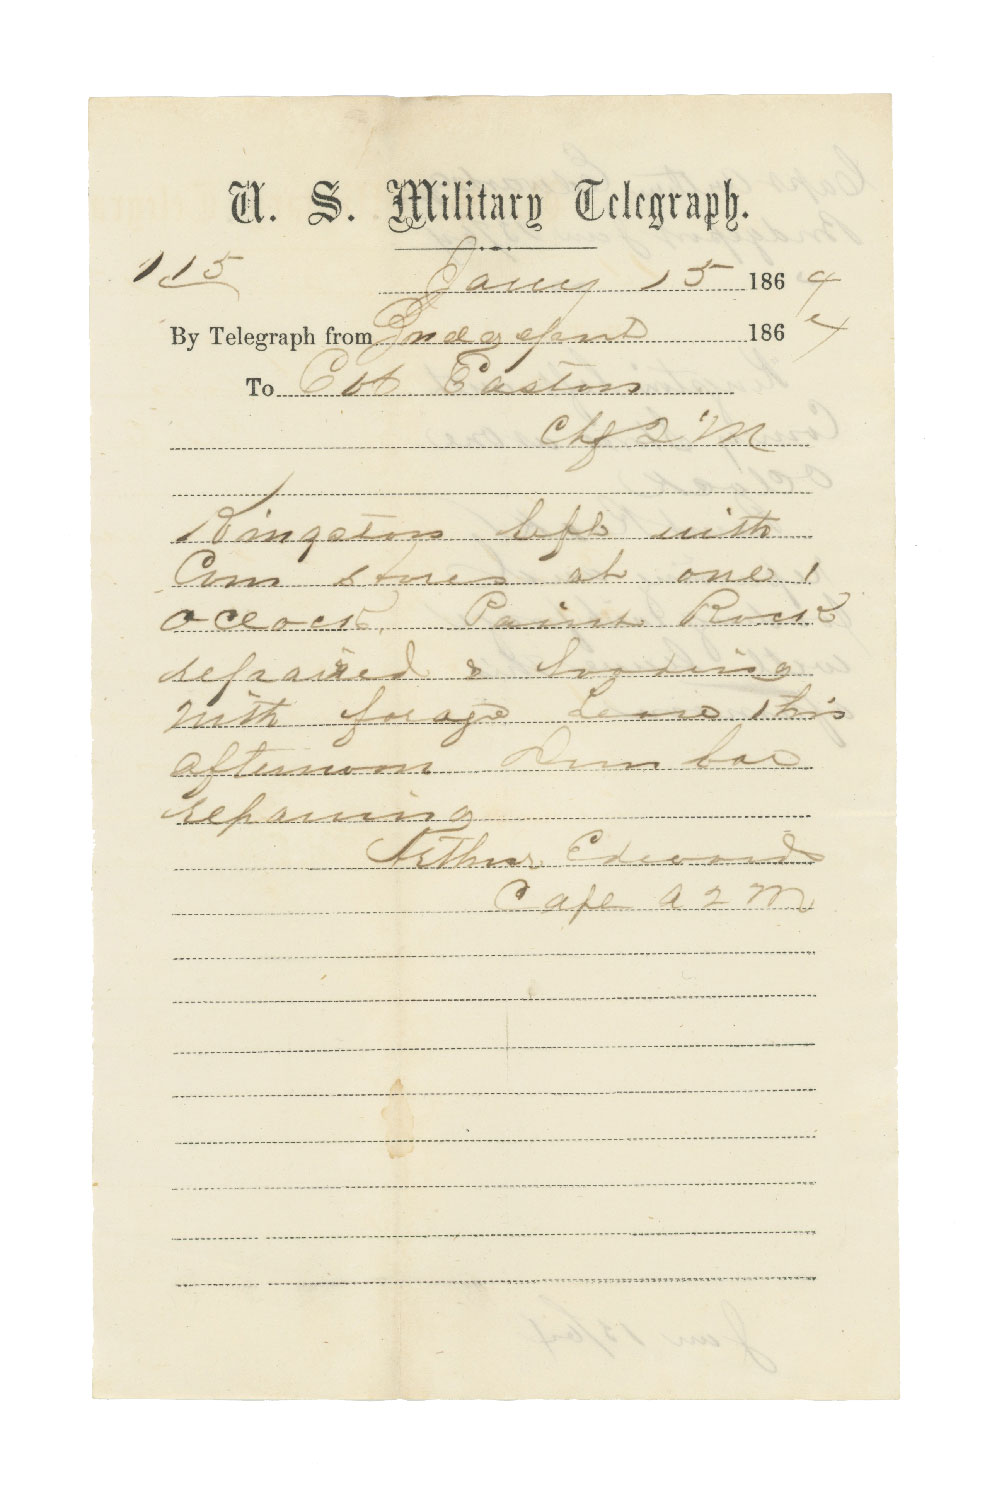 U. S. Military Telegraph.
115
Jany 15 1864
By Telegraph from Bridgeport 1864
To Col Easton
Chf Q M
Kingston left with
Com stores at one 1
oclock. Paint Rock
repaired & loading
with forage Leave this
afternoon Dunbar
repairing
Arthur Edwards
Capt A Q M
Jan 15/64